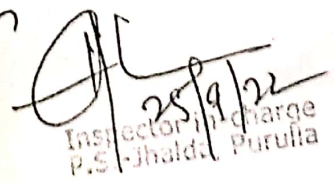 25/9/22
Inspector in charge
P.S.-Jhalda, Purulia